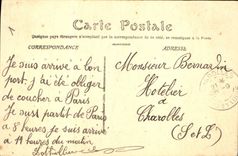 Carte Postale
Quelques pays étrangers n'acceptent pas la correspondance de ce côté, se renseigner à la Poste
CORRESPONDANCE
ADRESSE
Je suis arrivé à bon
port j'ai été obliger
de coucher à Paris
Je suis partit de Paris
à 8 heures je suis arrivé
à 11 heures du matin
Monsieur Bernardin
Hôtelier
à
Charolles
(S et L)